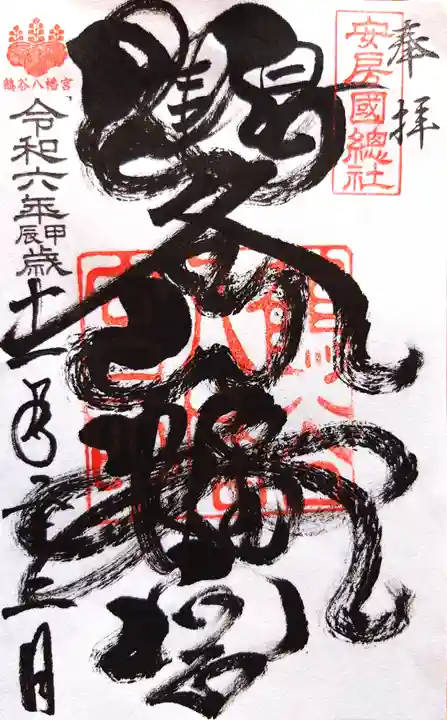 奉拝
安房國總社
鶴谷八幡宮
鶴谷八幡宮
令和六年甲辰歳十一月二十三日